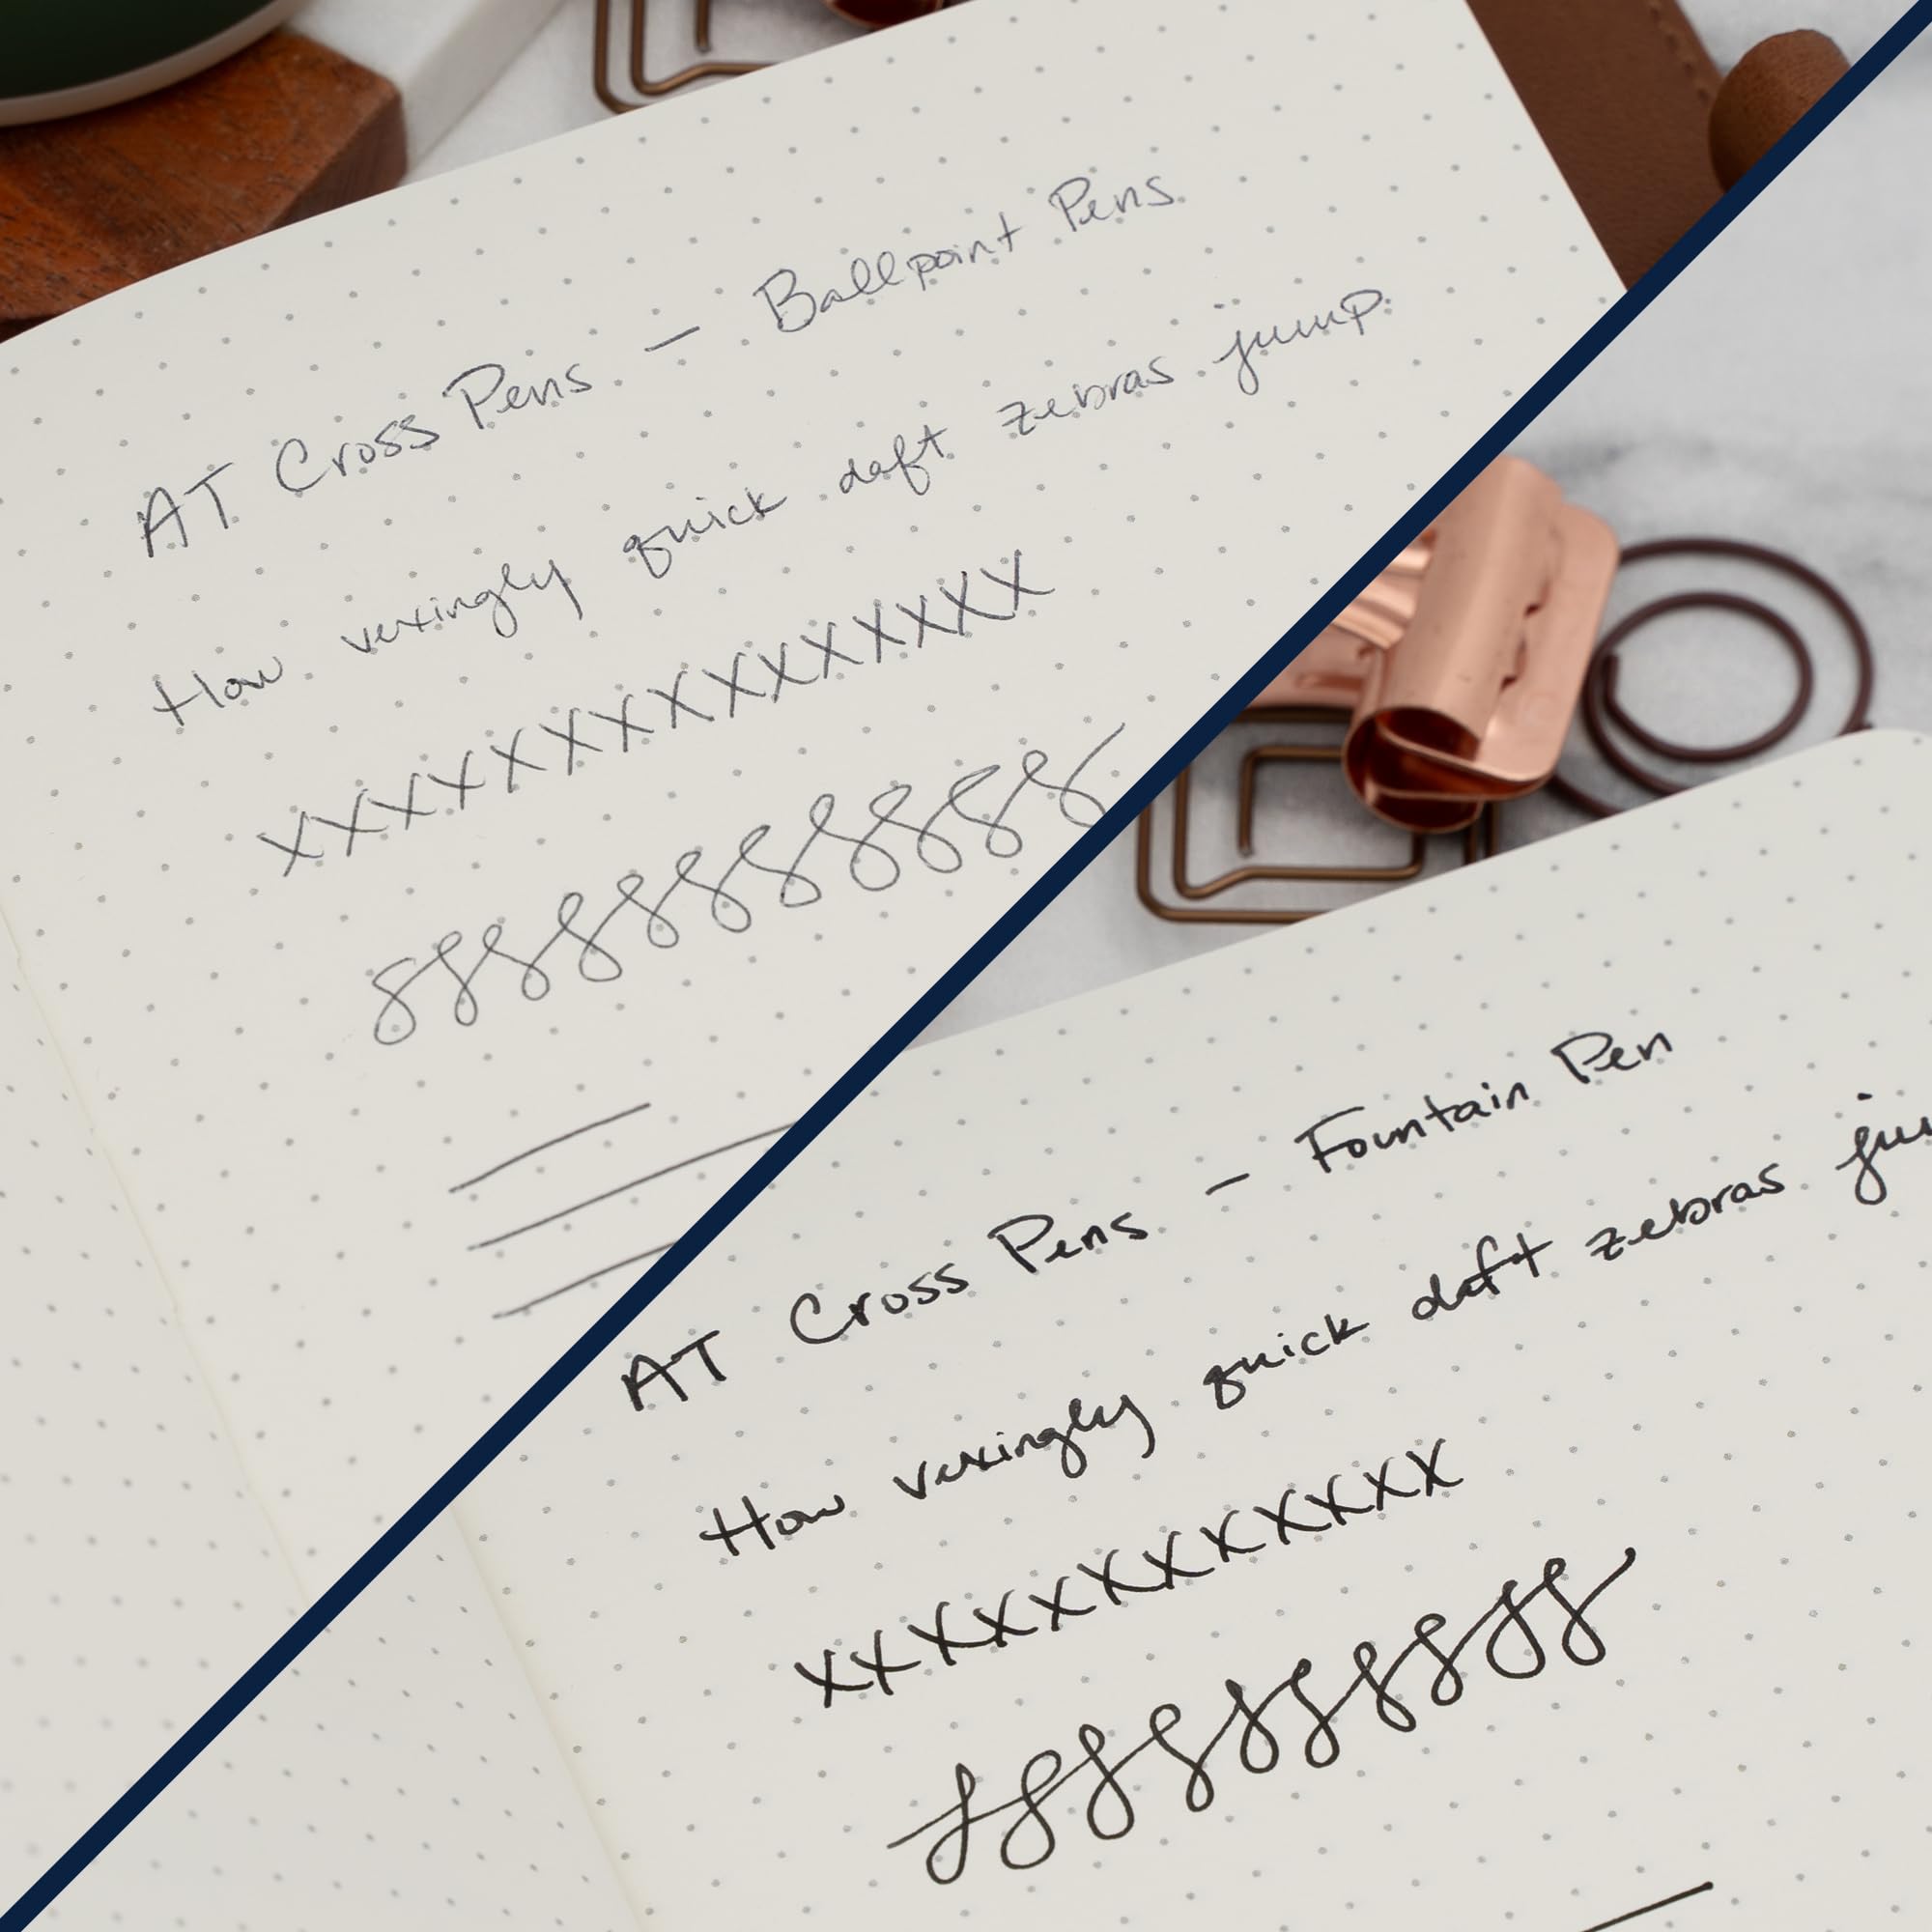 AT Cross Pens — Ballpoint Pens
How vexingly quick daft zebras jump.
XXXXXXXXXXXXXXX
AT Cross Pens — Fountain Pen
How vexingly quick daft zebras
XXXXXXXXXXXX